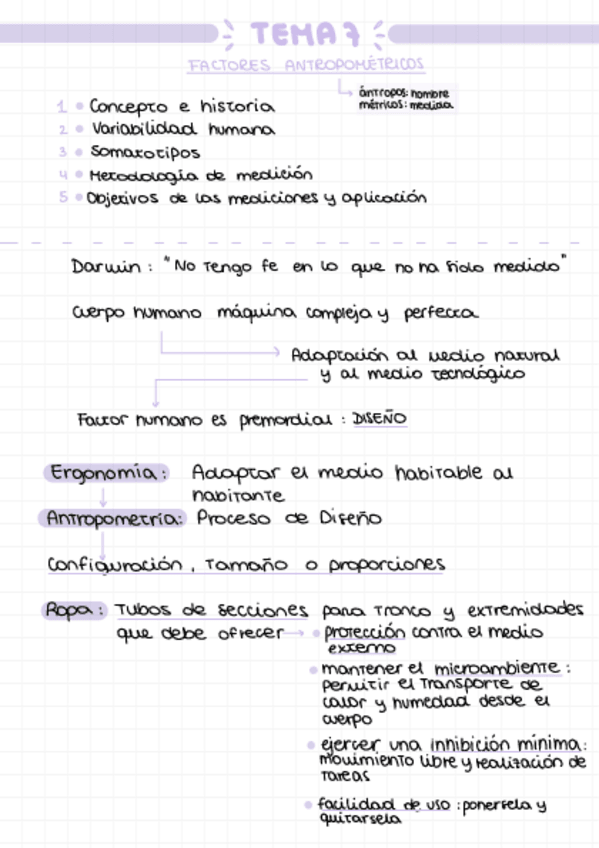 TEMA 7
FACTORES ANTROPOMÉTRICOS
ántropos: hombre
métricos: medida
1 • Concepto e historia
2 • Variabilidad humana
3 • Somatotipos
4 • Metodología de medición
5 • Objetivos de las mediciones y aplicación
Darwin : "No tengo fe en lo que no ha sido medido"
Cuerpo humano máquina compleja y perfecta
Adaptación al medio natural
y al medio tecnológico
Factor humano es primordial : DISEÑO
Ergonomía : Adaptar el medio habitable al
habitante
Antropometría: Proceso de Diseño
Configuración, tamaño o proporciones
Ropa : Tubos de secciones para tronco y extremidades
que debe ofrecer → • protección contra el medio
externo
• mantener el microambiente :
permitir el transporte de
calor y humedad desde el
cuerpo
• ejercer una inhibición mínima:
movimiento libre y realización de
tareas
• facilidad de uso : ponersela y
quitarsela